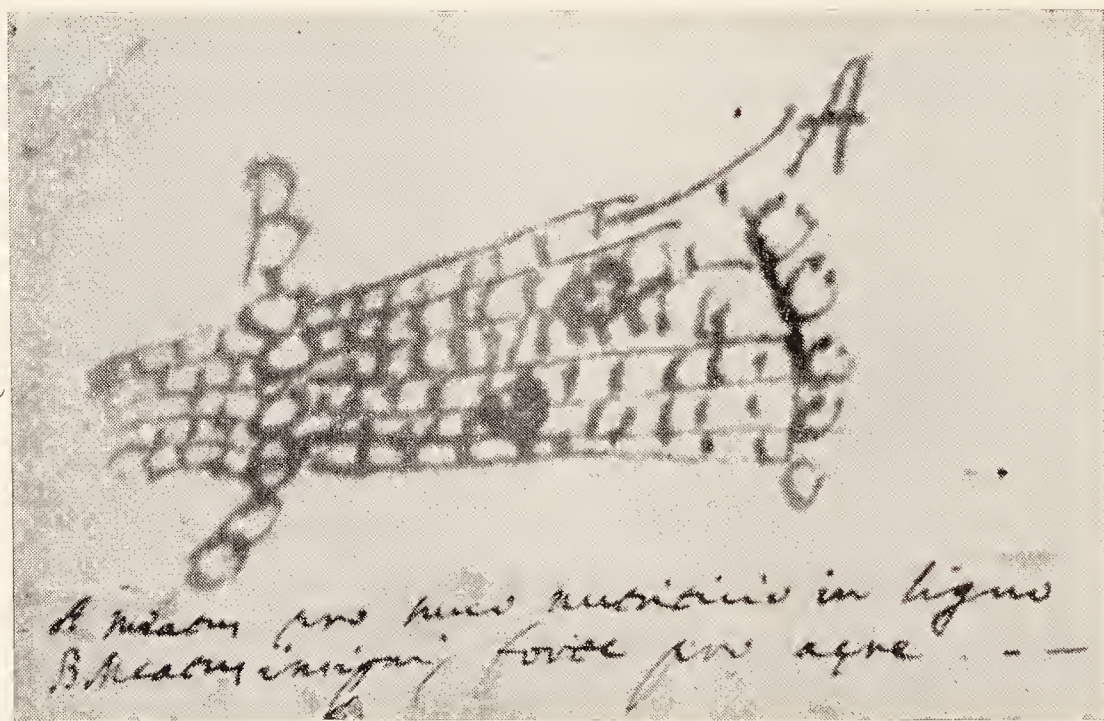 A
B
C
C
C
C
C
A meatus pro succo nutricio in ligno
B Meatus insignis forte pro aere . - —